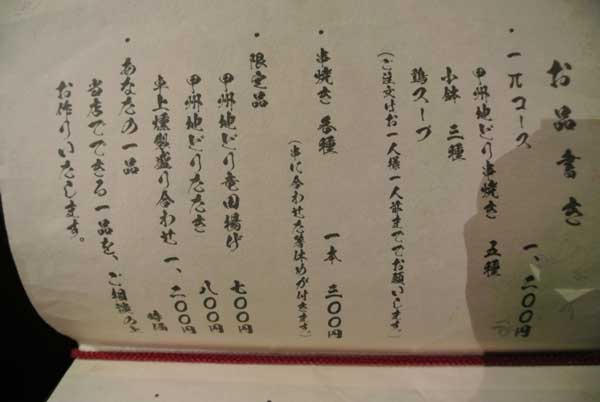 お品書き
・一π コース 一、二〇〇円
甲州地どり串焼き 五種
小鉢 三種
鶏スープ
(ご注文はお一人様一人前まででお願いします)
・串焼き 各種 一本 三〇〇円
(串に合わせた箸休めが付きます)
・限定品
甲州地どり竜田揚げ 七〇〇円
甲州地どりたたき 八〇〇円
卓上燻製盛り合わせ 一、二〇〇円
・あなたの一品 時価
当店でできる一品を、ご相談の上
お作りいたします。